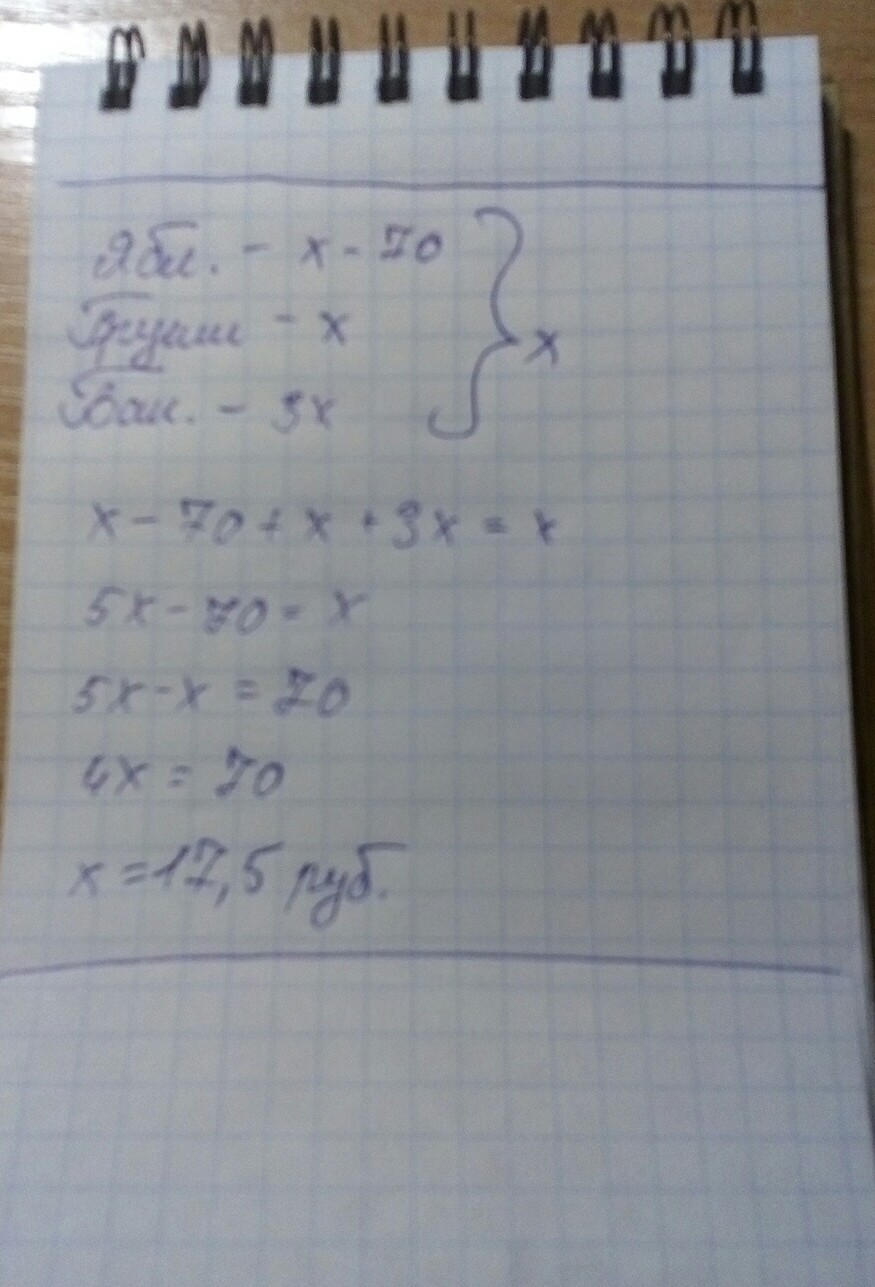 Ябл. - x - 70
Груши - x
Бан. - 3x
} x
x - 70 + x + 3x = x
5x - 70 = x
5x - x = 70
4x = 70
x = 17,5 руб.